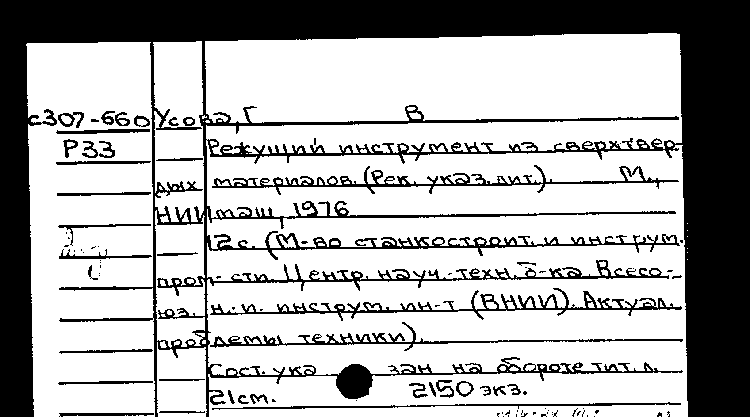 с307-660 Усова, Г В
Р33 Режущий инструмент из сверхтвер-
дых материалов. (Рек. указ. лит.). М.,
НИИмаш, 1976
12с. (М-во станкостроит. и инструм.
пром-сти. Центр. науч.-техн. б-ка. Всесо-
юз. н.-и. инструм. ин-т (ВНИИ). Актуал.
проблемы техники).
Сост. ука зан на обороте тит. л.
21cm. 2150 экз.